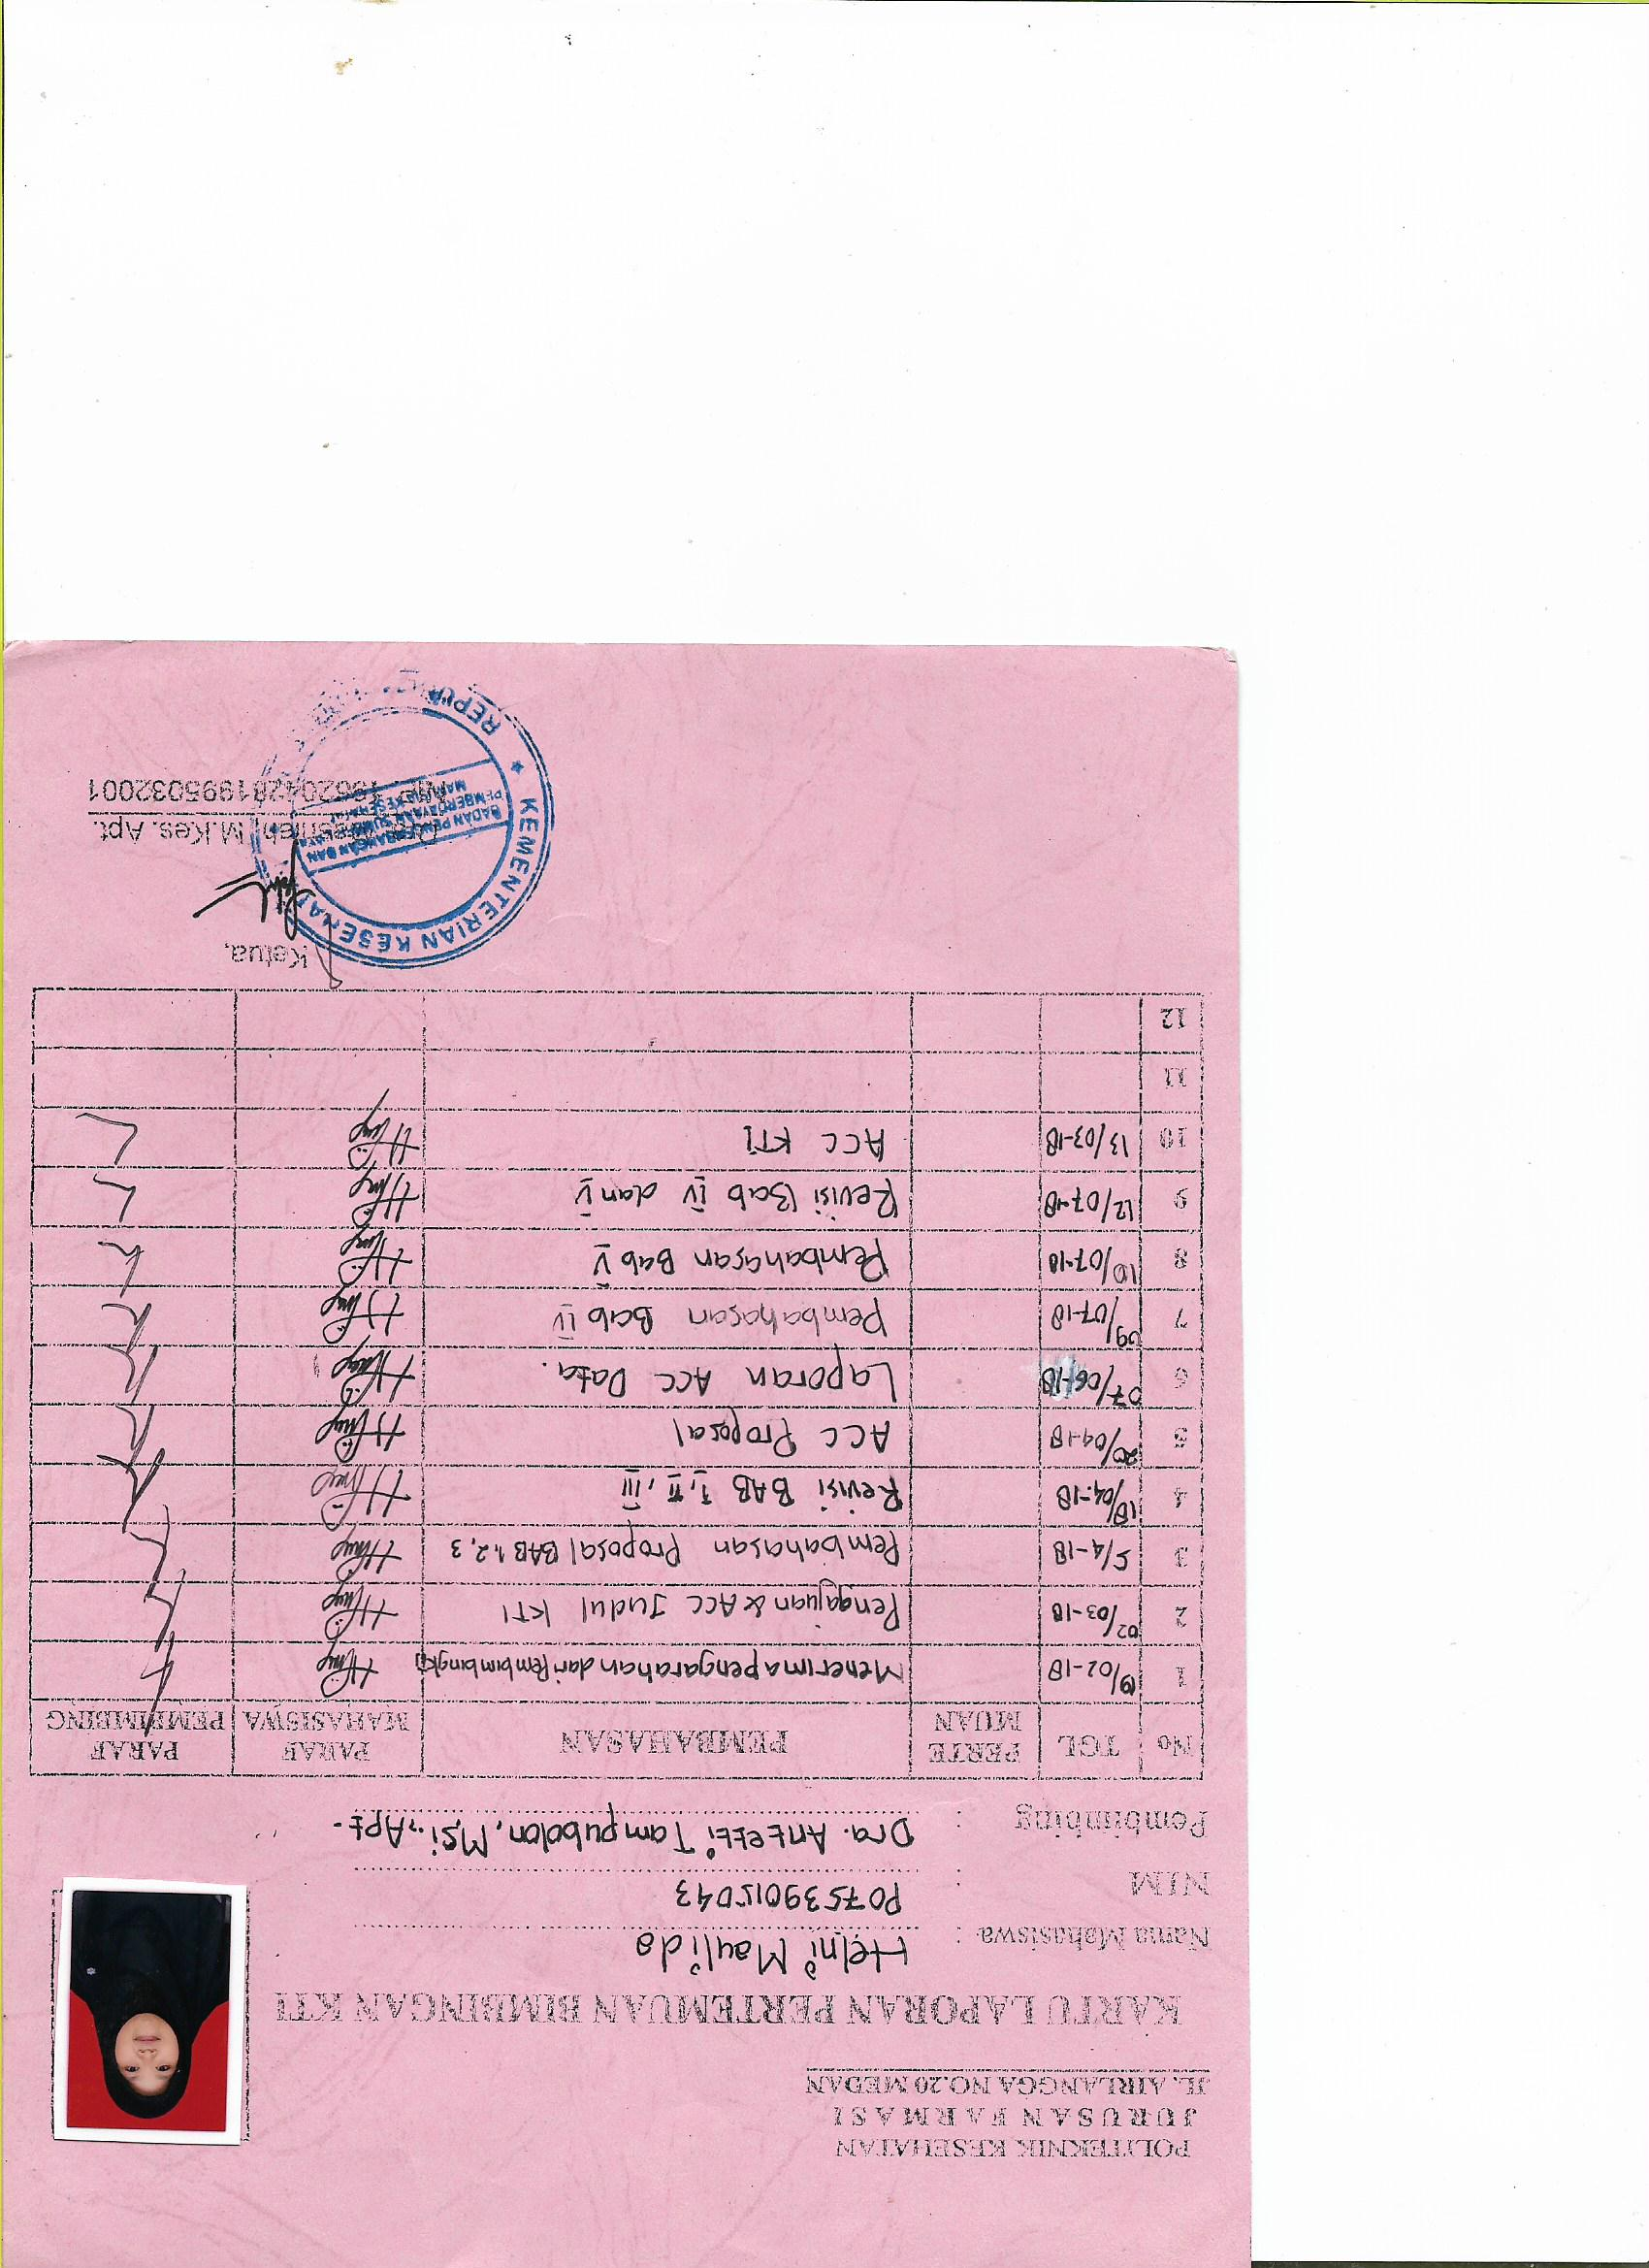 POLITEKNIK KESEHATAN
JURUSAN FARMASI
JL. AIRLANGGA NO.20 MEDAN
KARTU LAPORAN PERTEMUAN BIMBINGAN KTI
Nama Mahasiswa : Helni Maulida
NIM : P07539015043
Pembimbing : Dra. Antetti Tampubolon, M,Si., Apt.
No TGL PERTE MUAN PEMBAHASAN PARAF MAHASISWA PARAF PEMBIMBING
1 19/02-18 Menerima pengarahan dari Pembimbing KTI
2 02/03-18 Pengajuan & ACC Judul KTI
3 5/4-18 Pembahasan Proposal BAB 1,2,3
4 18/04-18 Revisi BAB I, II, III
5 20/04-18 ACC Proposal
6 07/06-18 Laporan ACC Data.
7 09/07-18 Pembahasan Bab IV
8 10/07-18 Pembahasan Bab V
9 12/07-18 Revisi Bab IV dan V
10 13/03-18 ACC KTI
11
12
Ketua,
M.Kes. Apt.
196204281995032001
KEMENTERIAN KESEHAT
REPU
BADAN PENGEMBANGAN DAN
PEMBERDAYAAN SUMBER DAYA
MANUSIA KESEHATAN